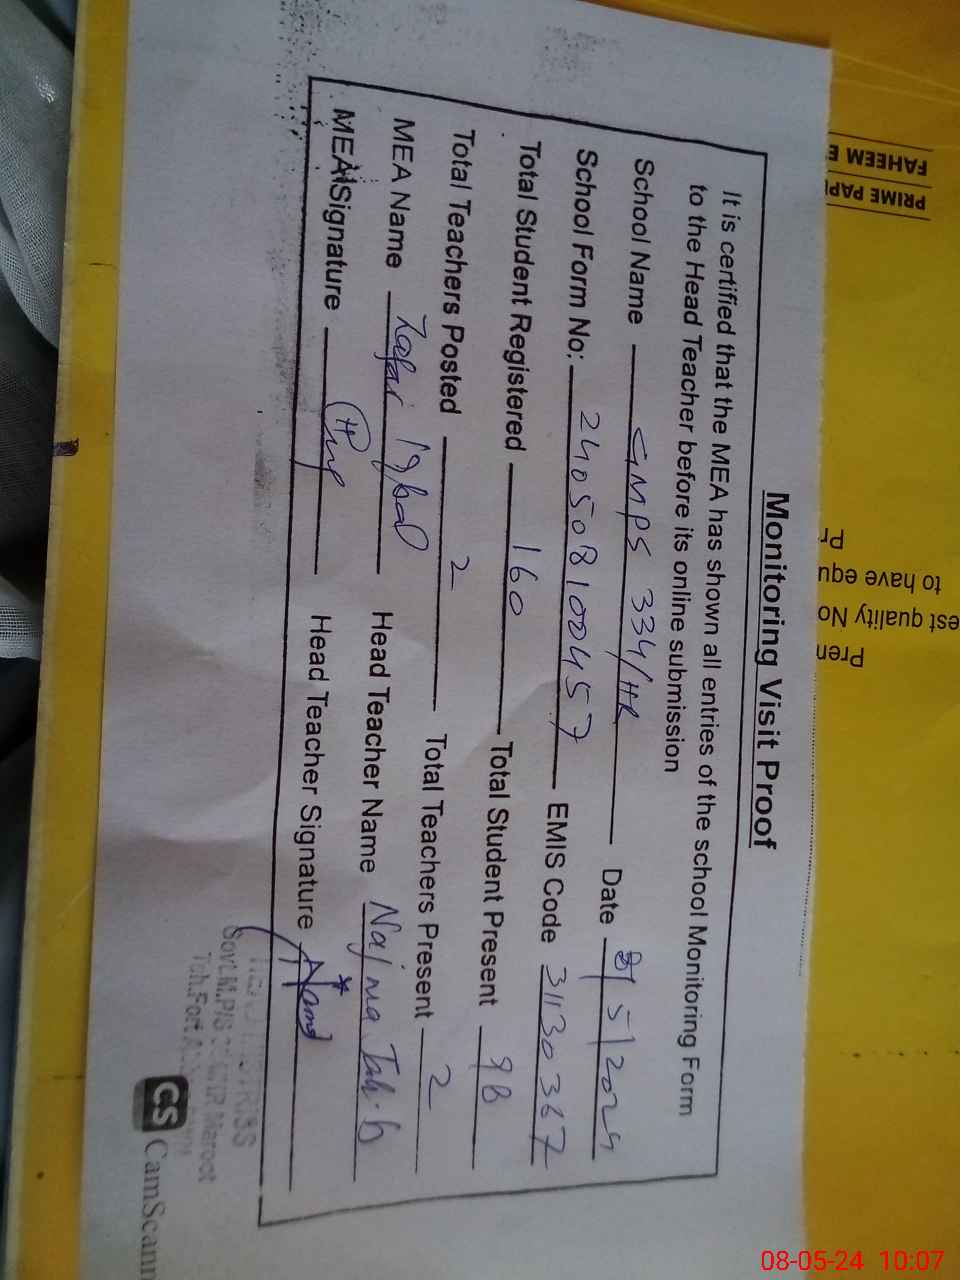 Monitoring Visit Proof
It is certified that the MEA has shown all entries of the school Monitoring Form
to the Head Teacher before its online submission
School Name GMPS 334/HR Date 8/5/2024
School Form No: 240508100457 EMIS Code 31130367
Total Student Registered 160 Total Student Present 98
Total Teachers Posted 2 Total Teachers Present 2
MEA Name Zafar Iqbal Head Teacher Name Najma
MEA Signature Head Teacher Signature
Govt.M.P/S Maroot
Teh.Fort
CS CamScann
FAHEEM E
PRIME PAP
Pr
to have equ
est quality No
Pren
08-05-24 10:07